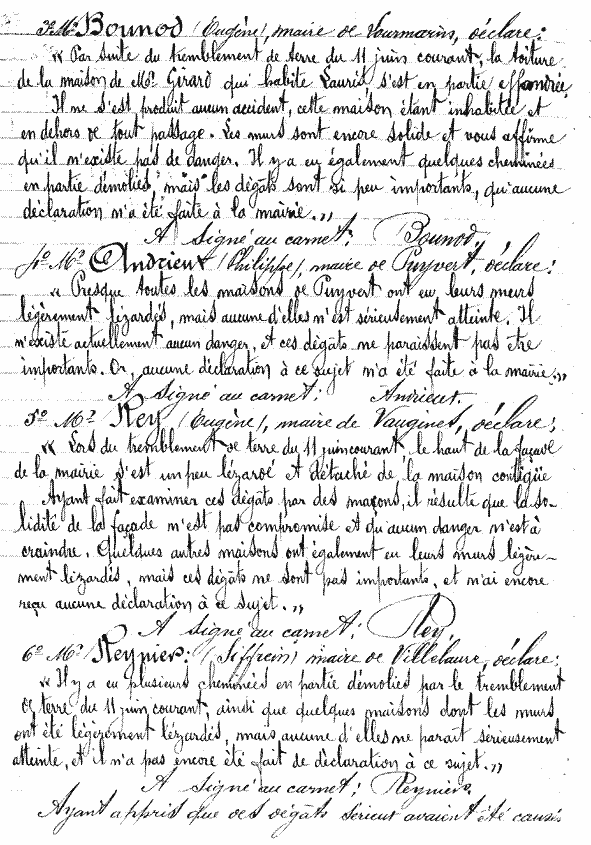 3º Mr Bounod (Eugène), maire de Lourmarin, déclare:
« Par suite du tremblement de terre du 11 juin courant, la toiture
de la maison de Mr Girard qui habite Lauris s'est en partie effondrée,
Il ne s'est produit aucun accident, cette maison étant inhabitée et
en dehors de tout passage. Les murs sont encore solide et vous affirme
qu'il n'existe pas de danger. Il y a eu également quelques cheminées
en partie démolies, mais les dégâts sont si peu importants, qu'aucune
déclaration n'a été faite à la mairie. »
A signé au carnet: Bounod,
4º Mr Andrieux (Philippe), maire de Puyvert, déclare:
« Presque toutes les maisons de Puyvert ont eu leurs murs
légèrement lézardés, mais aucune d'elles n'est sérieusement atteinte. Il
n'existe actuellement aucun danger, et ces dégâts ne paraissent pas être
importants. Or, aucune déclaration à ce sujet n'a été faite à la mairie. »
A signé au carnet: Andrieux.
5º Mr Rey (Eugène), maire de Vaugines, déclare:
« Lors du tremblement de terre du 11 juin courant, le haut de la façade
de la mairie s'est un peu lézardé et détaché de la maison contigüe
Ayant fait examiner ces dégâts par des maçons, il résulte que la so-
lidité de la façade n'est pas compromise et qu'aucun danger n'est à
craindre. Quelques autres maisons ont également eu leurs murs légère-
ment lézardés, mais ces dégâts ne sont pas importants, et n'ai encore
reçu aucune déclaration à ce sujet. »
A signé au carnet: Rey,
6º Mr Reynier: (Siffrein) maire de Villelaure, déclare:
« Il y a eu plusieurs cheminées en partie démolies par le tremblement
de terre du 11 juin courant, ainsi que quelques maisons dont les murs
ont été légèrement lézardés, mais aucune d'elles ne parait sérieusement
atteinte, et il n'a pas encore été fait de déclaration à ce sujet. »
A signé au carnet: Reynier.
Ayant appris que des dégâts sérieux avaient été causés